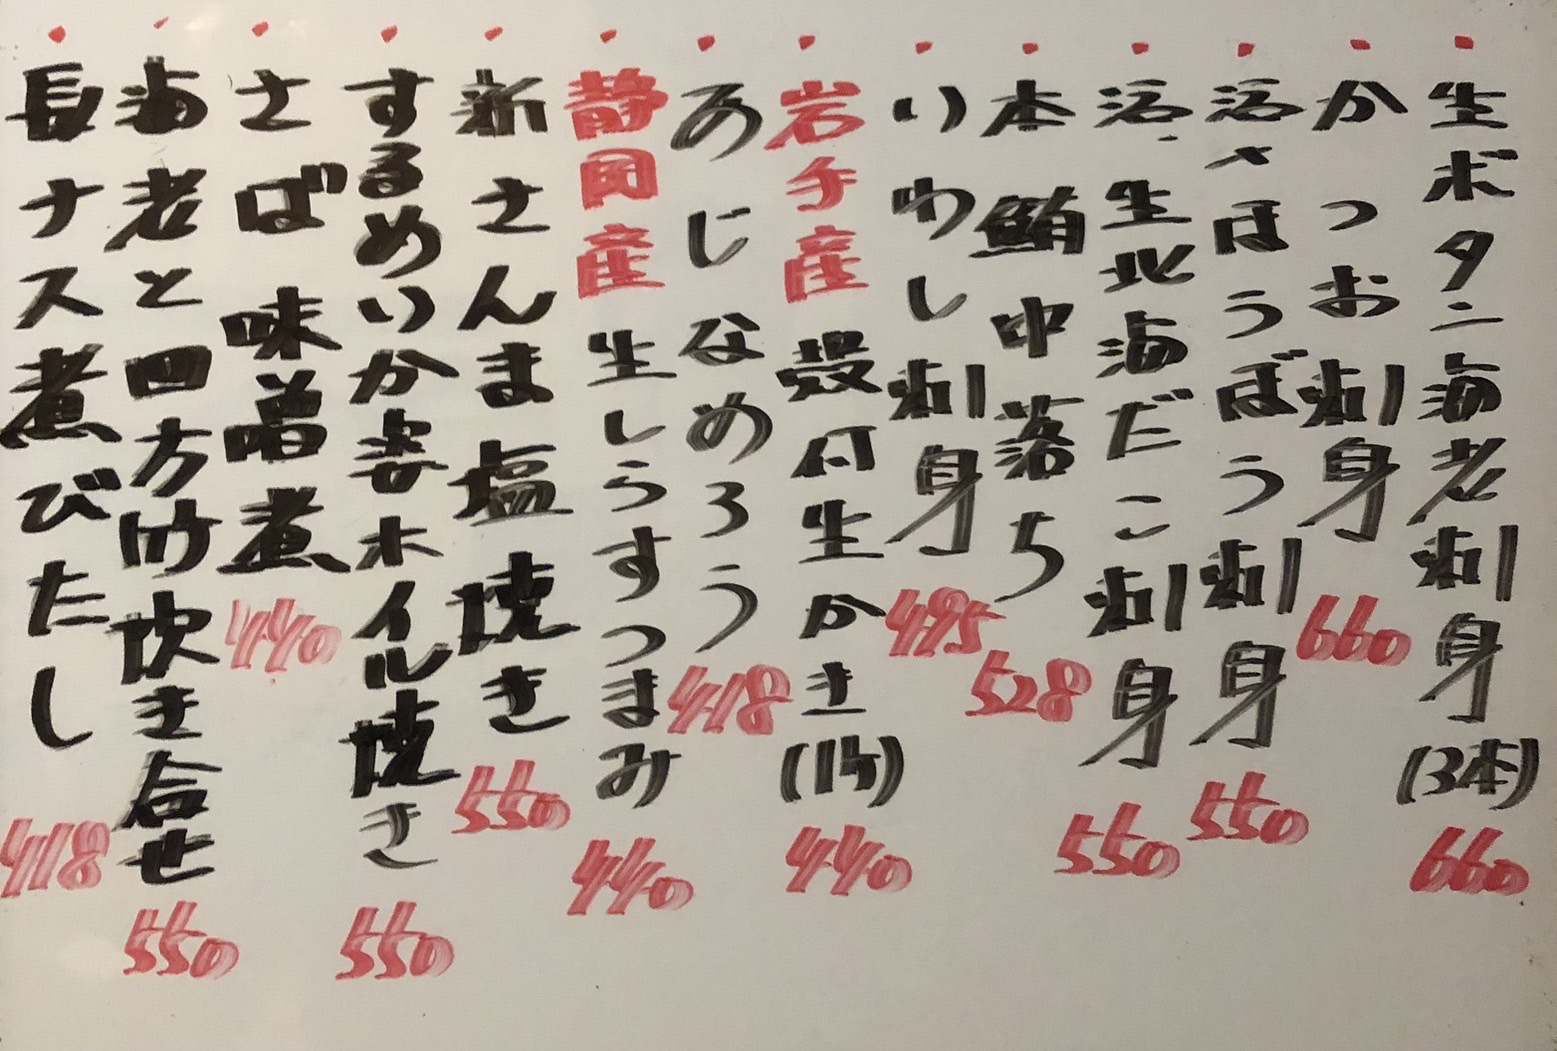 生ボタン海老刺身(3本) 660
かつお刺身 660
活〆ほうぼう刺身 550
活生北海だこ刺身 550
本鮪中落ち 528
いわし刺身 495
岩手産殻付生かき(1ケ) 440
あじなめろう 418
静岡産生しらすつまみ 440
新さんま塩焼き 550
するめいか姿ホイル焼き 550
さば味噌煮 440
海老と四方竹吹き合せ 550
長ナス煮びたし 418